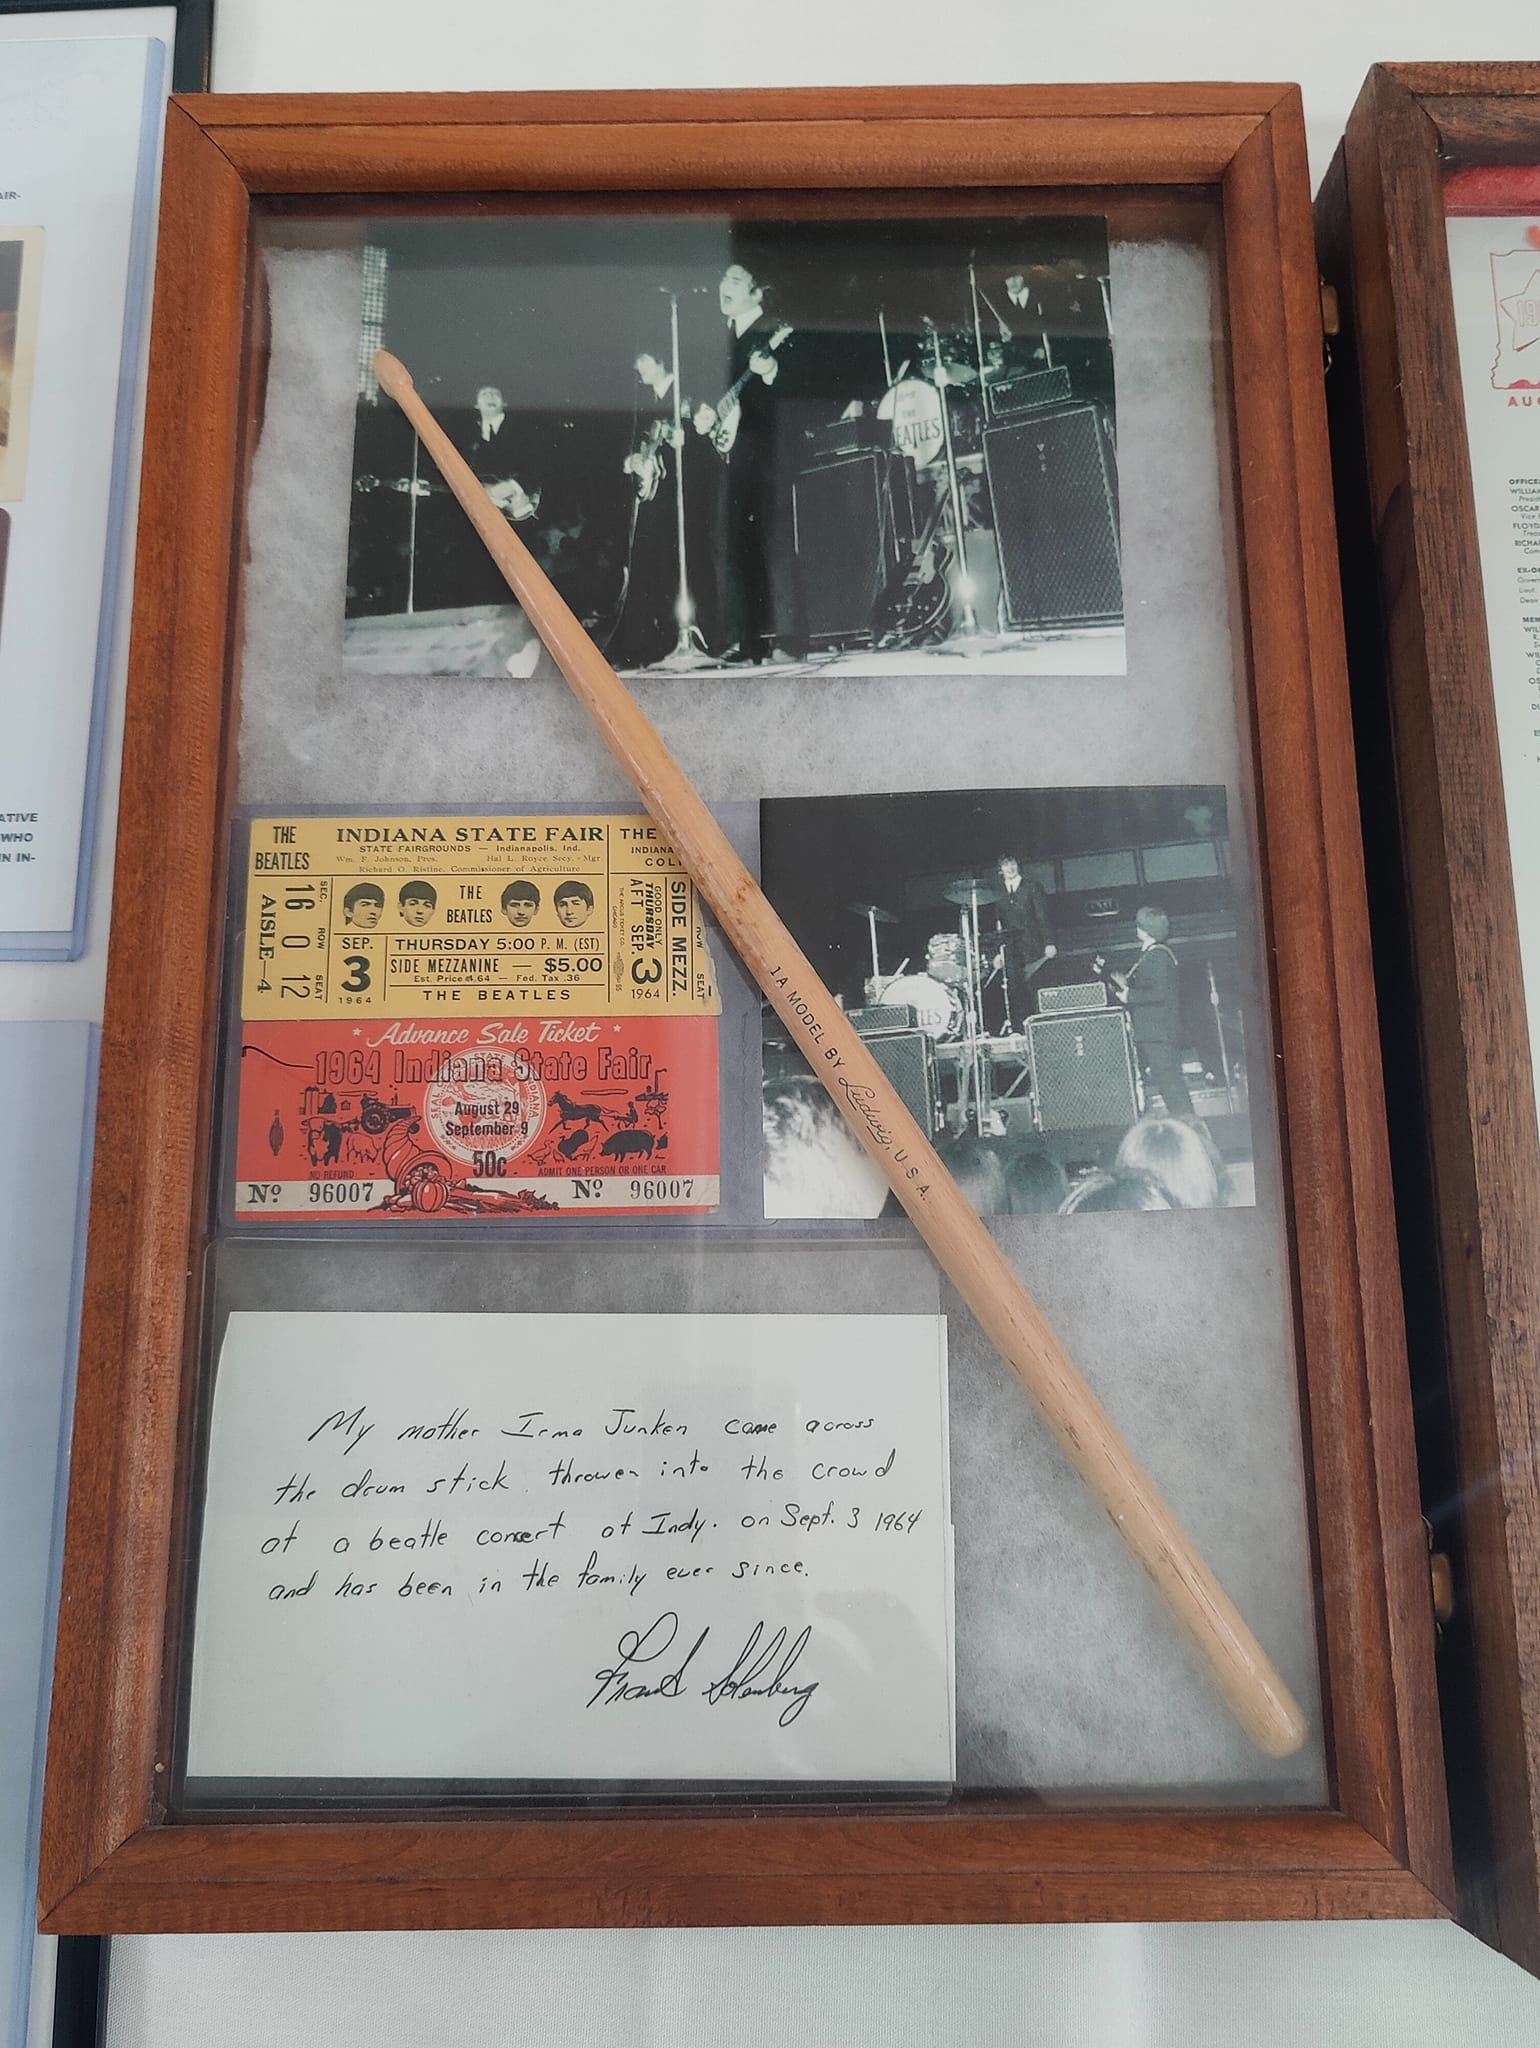 AIR-
ATIVE
WHO
IN IN-
THE
BEATLES
EATLES
VOX
THE
BEATLES
INDIANA STATE FAIR
STATE FAIRGROUNDS — Indianapolis, Ind.
Wm. F. Johnson, Pres. Hal L. Royce Secy. - Mgr
Richard O. Ristine, Commissioner of Agriculture
SEC. ROW SEAT
16 0 12
AISLE—4
THE
BEATLES
SEP.
3
1964
THURSDAY 5:00 P. M. (EST)
SIDE MEZZANINE — $5.00
Est. Price 4.64 — Fed. Tax .36
THE BEATLES
THE
INDIANA
COL
GOOD ONLY
THURSDAY
AFT SEP. 3
1964
SIDE MEZZ.
ROW SEAT
Advance Sale Ticket
1964 Indiana State Fair
SEAL STATE INDIANA
August 29
September 9
50c
NO REFUND
ADMIT ONE PERSON OR ONE CAR
No 96007
No 96007
LES
1A MODEL BY Ludwig, U.S.A.
My mother Irma Junken came across
the drum stick thrower into the crowd
at a beatle concert at Indy. on Sept. 3 1964
and has been in the family ever since.
AUG
OFFICE
WILLIA
OSCAR
Vice
FLOYD
RICHA